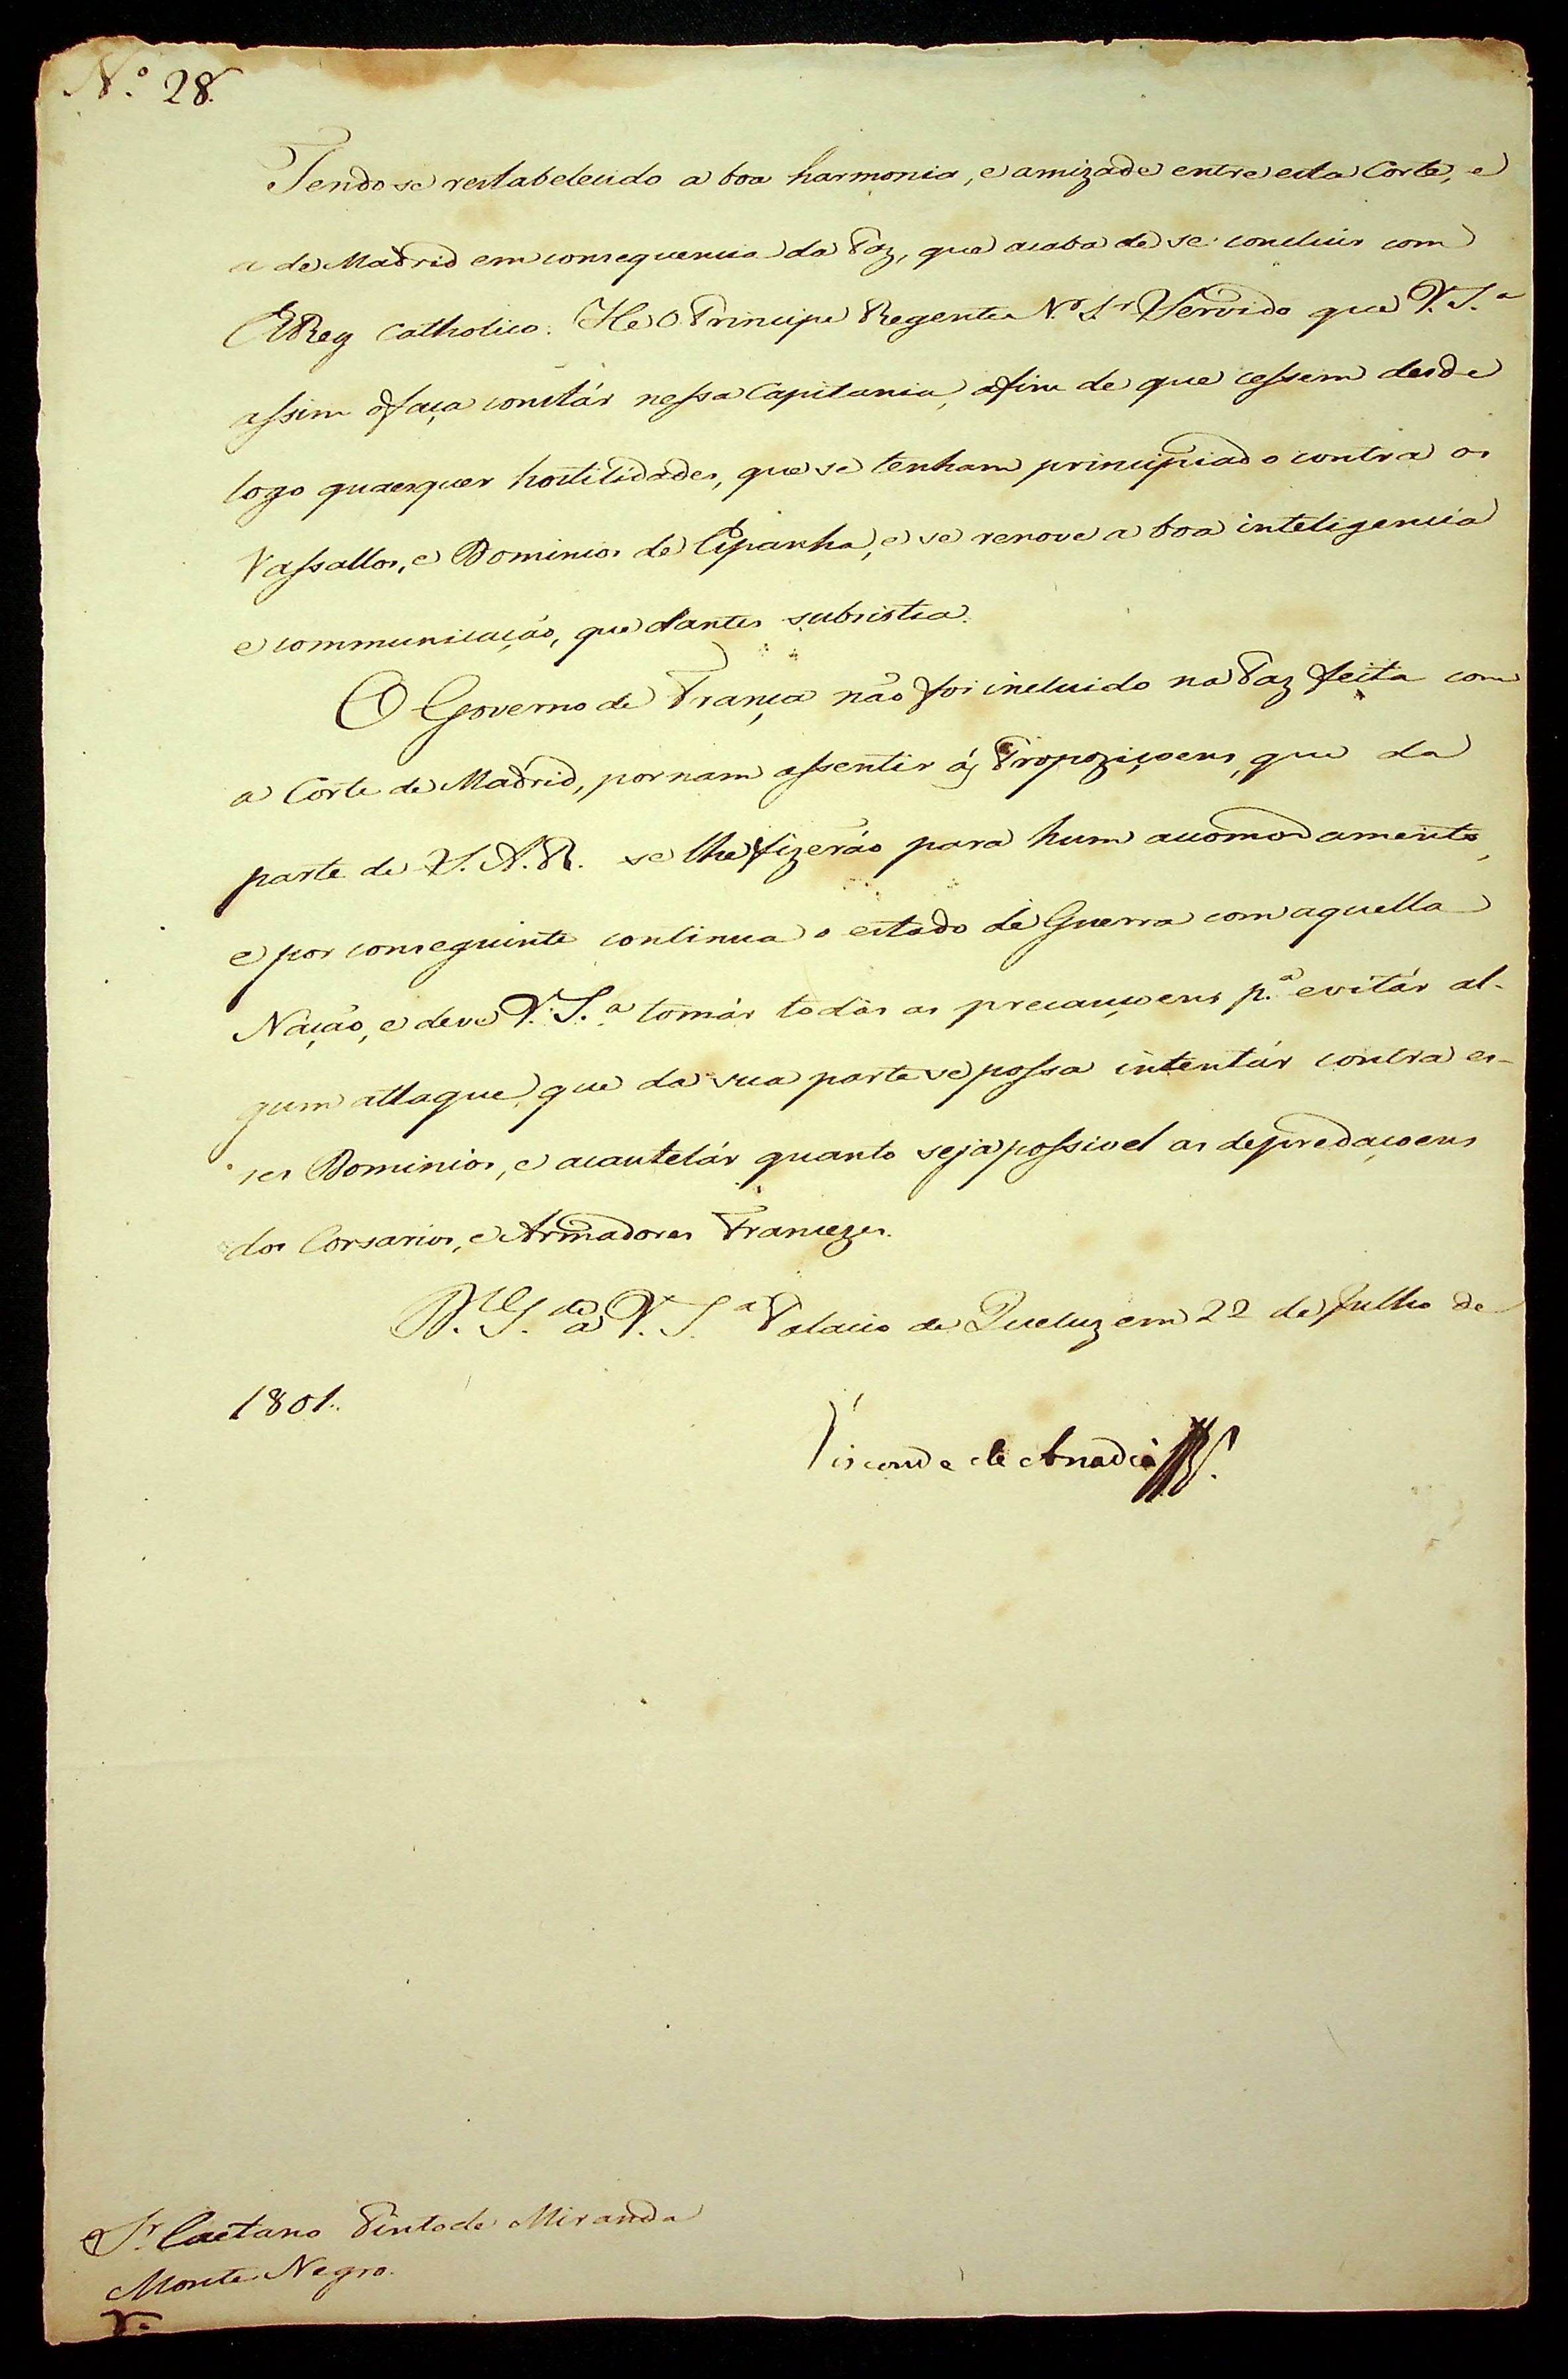 N.º 28.
Tendo se restabelecido a boa harmonia, e amizade entre esta Corte, e
a de Madrid em consequencia da Paz, que acaba de se concluir com
ElRey Catholico: He O Principe Regente N.º S.r Servido que V. S.ª
assim o faça constár nessa Capitania, afim de que cessem desde
logo quaesquer hostilidades, que se tenham principiado contra os
Vassallos, e Dominios de Espanha, e se renove a boa inteligencia
e communicação, que dantes subsistia.
O Governo de França não foi incluido na Paz feita com
a Corte de Madrid, por nam assentir ás Propoziçoens, que da
parte de S. A. R. se lhe fizerão para hum accomodamento,
e por conseguinte continua o estado de Guerra com aquella
Nação, e deve V. S.ª tomár todas as precauçoens p.ª evitár al-
gum attaque, que da sua parte se possa intentár contra es-
ses Dominios, e acautelár quanto seja possivel as depredaçoens
dos Corsarios, e Armadores Francezes.
D.s G.de a V. S.ª Palacio de Queluz em 22 de Julho de
1801.
Visconde de Anadia
S.r Caetano Pinto de Miranda
Monte Negro.